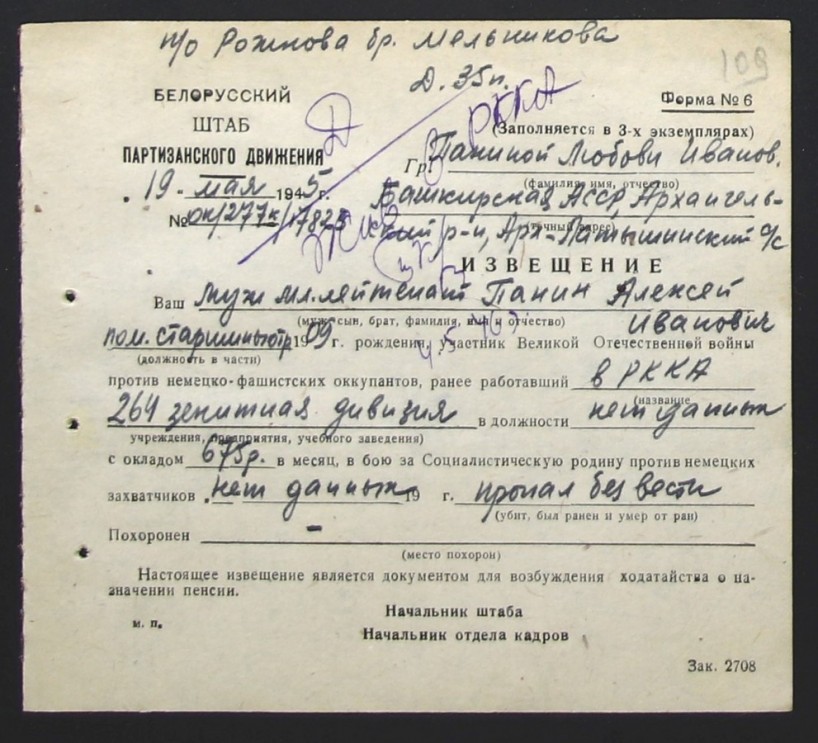 п/о Рожнова бр. Мельникова
Д. 35 п.
109
БЕЛОРУССКИЙ
ШТАБ
ПАРТИЗАНСКОГО ДВИЖЕНИЯ
Д
РККА
Форма № 6
(Заполняется в 3-х экземплярах)
19 - мая 1945 г.
Гр. Паниной Любови Иванов.
(фамилия, имя, отчество)
Башкирская АССР, Архангель-
№ ок/277к/17823
ский р-н, Арх-Латышинский с/с
(точный адрес)
ИЗВЕЩЕНИЕ
Ваш муж мл. лейтенант Панин Алексей
Иванович
(муж, сын, брат, фамилия, имя и отчество)
пом. старшины отр 1909 г. рождения, участник Великой Отечественной войны
(должность в части)
против немецко-фашистских оккупантов, ранее работавший в РККА
(название
264 зенитная дивизия в должности нет данных
учреждения, предприятия, учебного заведения)
с окладом 675р. в месяц, в бою за Социалистическую родину против немецких
захватчиков нет данных 19 г. пропал без вести
(убит, был ранен и умер от ран)
Похоронен -
(место похорон)
Настоящее извещение является документом для возбуждения ходатайства о на-
значении пенсии.
Начальник штаба
м. п.
Начальник отдела кадров
Зак. 2708